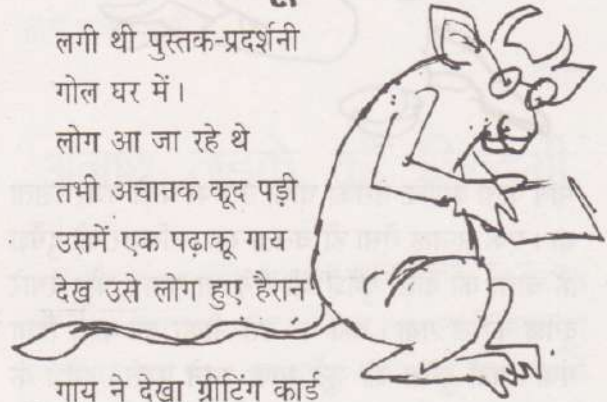 लगी थी पुस्तक-प्रदर्शनी
गोल घर में।
लोग आ जा रहे थे
तभी अचानक कूद पड़ी
उसमें एक पढ़ाकू गाय
देख उसे लोग हुए हैरान
गाय ने देखा ग्रीटिंग कार्ड